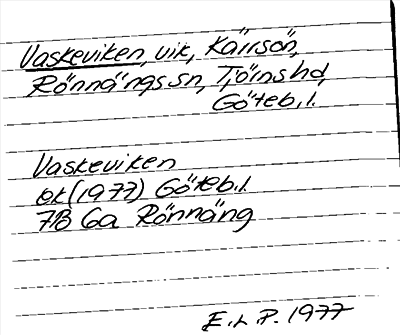 Vaskeviken, vik, Kärrsön,
Rönnängs sn, Tjörns hd,
Göteb.l.
Vaskeviken
ek (1977) Göteb.l.
7B 6a Rönnäng
E.L P. 1977